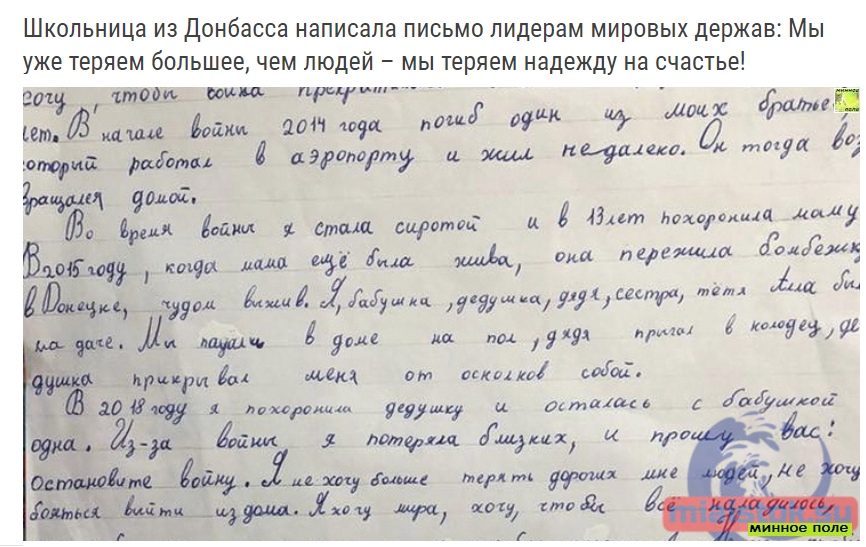 Школьница из Донбасса написала письмо лидерам мировых держав: Мы
уже теряем большее, чем людей – мы теряем надежду на счастье!
минное
поле
хочу, чтобы война
лет. В начале войны 2014 года погиб один из моих братье
оторый работал в аэропорту и жил недалеко. Он тогда воз
вращался домой.
Во время войны я стала сиротой и в 13 лет похоронила маму
В 2015 году, когда мама ещё была жива, она пережила бомбежк
в Донецке, чудом выжив. Я, бабушка, дедушка, дядя, сестра, тётя Алла бы
на даче. Мы падали в доме на пол, дядя прыгал в колодец, де
душка прикрывал меня от осколков собой.
В 2018 году я похоронила дедушку и осталась с бабушкой
одна. Из-за войны я потеряла близких, и прошу вас:
остановите войну. Я не хочу больше терять дорогих мне людей, не хочу
бояться выйти из дома. Я хочу мира, хочу, чтобы всё наладилось,
минное поле